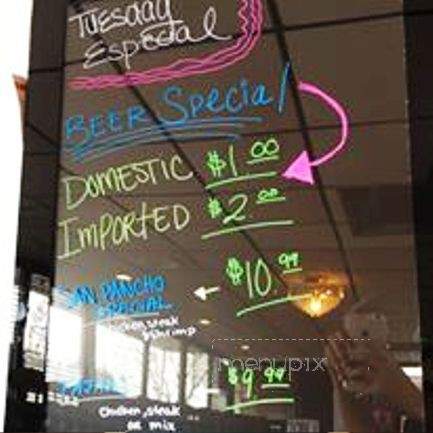 Tuesday
Especial
BEER Special
DOMESTIC $1.00
IMPORTED $2.00
SAN PANCHO $10.99
SPECIAL
chicken, steak
& shrimp
menupix
$9.99
Chicken, steak
or mix